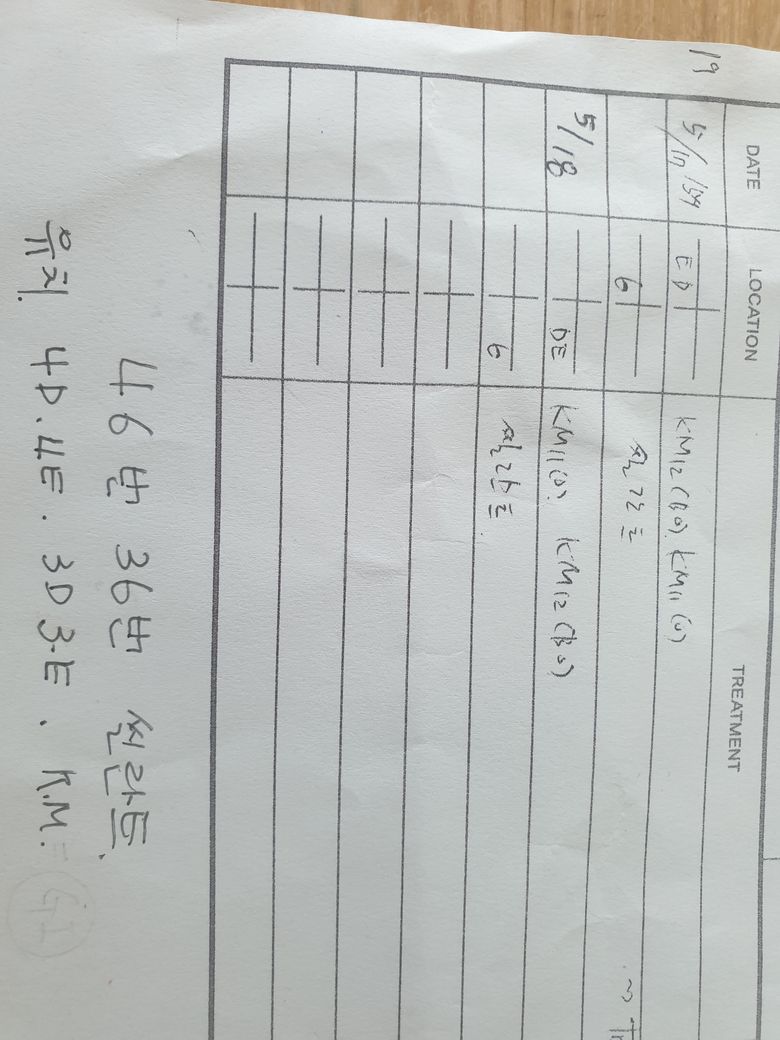 19
DATE LOCATION TREATMENT
E D KM12 (BO). KM11 (O)
6 실란트
5/18 DE KM11 (O). KM12 (BO)
6 실란트.
46번 36번 씰란트.
유치. 4D. 4E. 3D 3E. K.M.